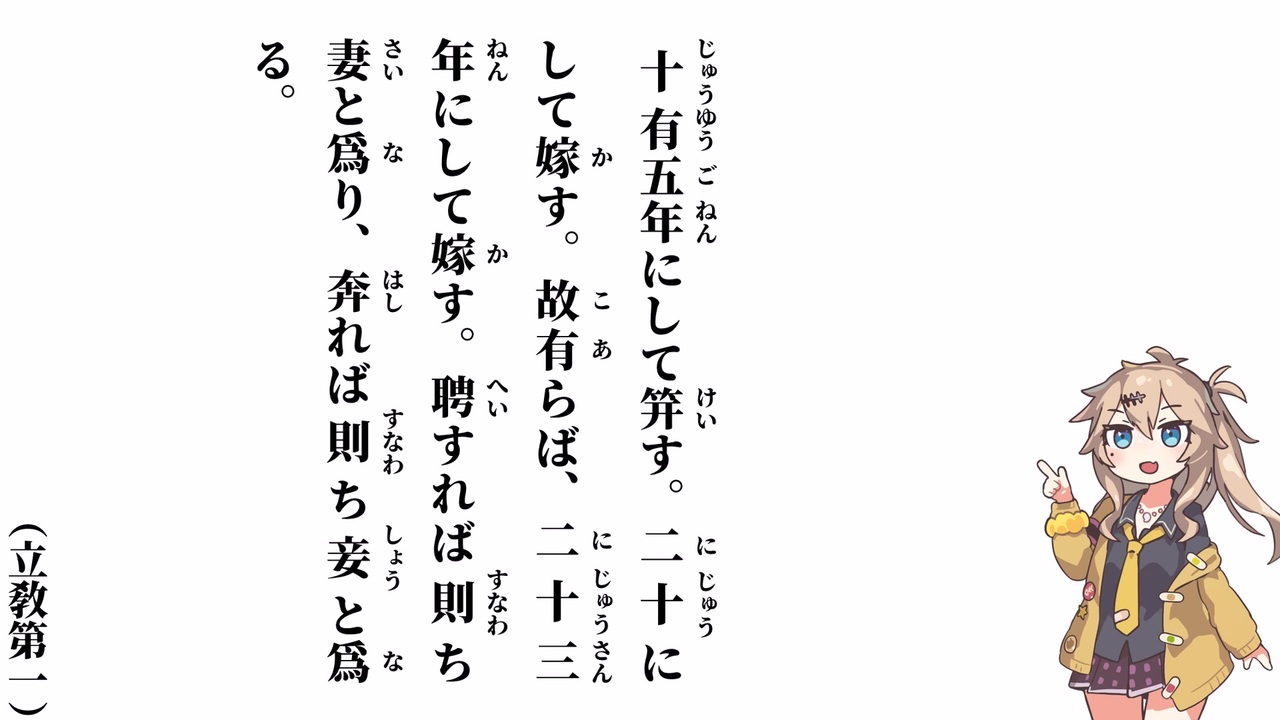 十有五年にして笄す。二十に
して嫁す。故有らば、二十三
年にして嫁す。聘すれば則ち
妻と爲り、奔れば則ち妾と爲
る。
(立教第一)